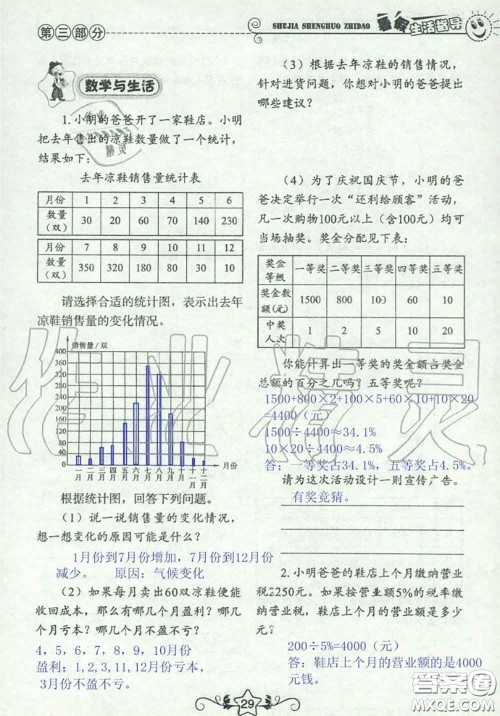 第三部分
SHUJIA SHENGHUO ZHIDAO
暑假生活指导
数学与生活
1.小明的爸爸开了一家鞋店。小明
把去年售出的凉鞋数量做了一个统计，
结果如下：
去年凉鞋销售量统计表
月份 1 2 3 4 5 6
数量(双) 30 20 60 70 150 220
月份 7 8 9 10 11 12
数量(双) 350 320 180 80 30 20
请选择合适的统计图，表示出去年
凉鞋销售量的变化情况。
销售量/双
400
360
320
280
240
200
160
120
80
40
0
一月 二月 三月 四月 五月 六月 七月 八月 九月 十月 十一月 十二月 月份
根据统计图，回答下列问题。
（1）说一说销售量的变化情况，
想一想变化的原因可能是什么？
1月份到7月份增加，7月份到12月份
减少。 原因：气候变化
（2）如果每月卖出60双凉鞋便能
收回成本，那么有哪几个月盈利？哪几
个月亏本？哪几个月不盈不亏？
4，5，6，7，8，9，10月份
盈利；1,2,3,11,12月份亏本；
3月份不盈不亏
（3）根据去年凉鞋的销售情况，
针对进货问题，你想对小明的爸爸提出
哪些建议？
（4）为了庆祝国庆节，小明的爸
爸决定举行一次“还利给顾客”活动，
凡一次购物100元以上（含100元）均可
当场抽奖。奖金分配见下表：
奖金等级 一等奖 二等奖 三等奖 四等奖 五等奖
奖金数额(元) 1500 800 100 60 10
中奖人次 1 2 5 10 20
你能计算出一等奖的奖金额占奖金
总额的百分之几吗？五等奖呢？
1500+800×2+100×5+60×10+10×20
=4400（元）
1500÷4400≈34.1%
10×20÷4400≈4.5%
答：一等奖占34.1%，五等奖占4.5%。
请为这次活动设计一则宣传广告。
有奖竞猜。
2.小明爸爸的鞋店上个月缴纳营业
税2250元。如果按营业额5%的税率缴
纳营业税，小明爸爸上个月的营业额是多少
元？
200÷5%=4000（元）
答：鞋店上个月的营业额的是4000
元钱。
29
作业精灵
答案圈
MXQE.COM